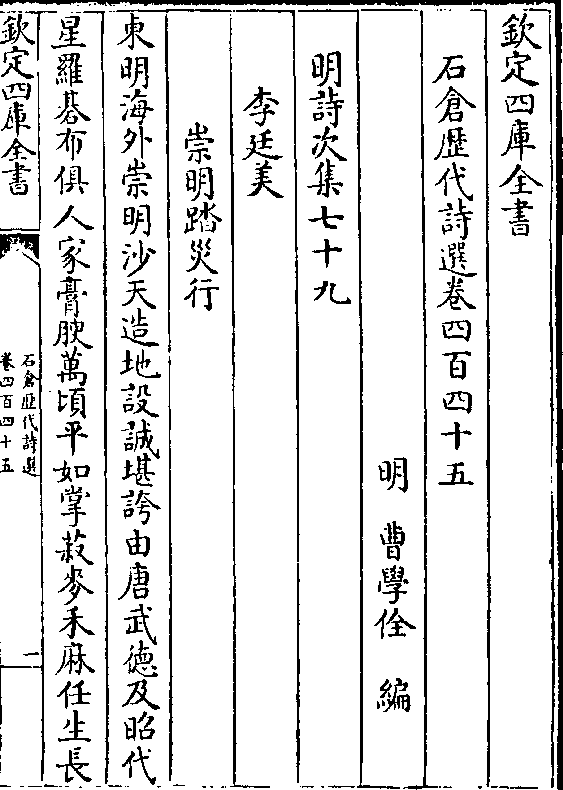 欽定四庫全書
石倉歴代詩選卷四百四十五
明　曹學佺　編
明詩次集七十九
李廷美
崇明踏災行
東明海外崇明沙天造地設誠堪誇由唐武徳及昭代
星羅碁布俱人家膏腴萬頃平如掌菽麥禾麻任生長
欽定四庫全書
石倉歴代詩選
卷四百四十五
一